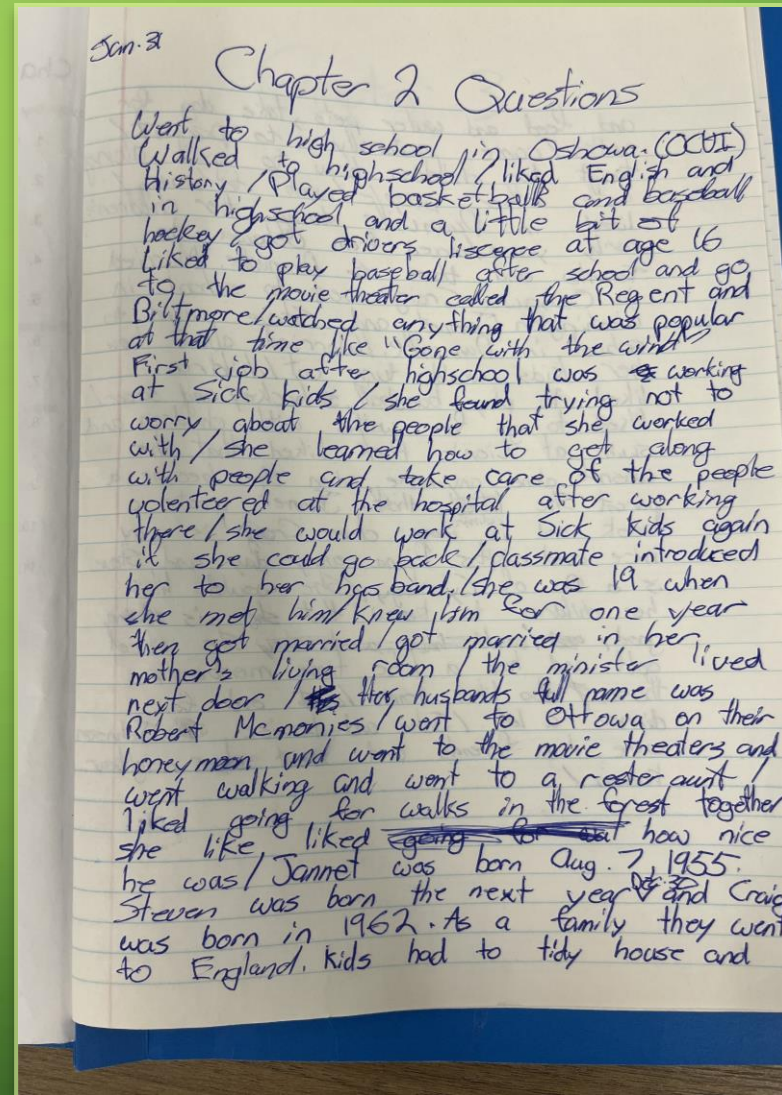 Jan. 31
Chapter 2 Questions
Went to high school in Oshowa. (OCVI)
Walked to highschool / liked English and
History / Played basketballs and baseball
in highschool and a little bit of
hockey / got drivers liscence at age 16
Liked to play baseball after school and go
to the movie theater called the Regent and
Biltmore / watched anything that was popular
at that time like "Gone with the wind"
First job after highschool was working
at Sick kids / she found trying not to
worry about the people that she worked
with / she learned how to get along
with people and take care of the people
volenteered at the hospital after working
there / she would work at Sick kids again
if she could go back / classmate introduced
her to her hasband. / she was 19 when
she met him / knew him for one year
then got married / got married in her
mother's living room / the minister lived
next door / Her husbands full name was
Robert Mcmonies / went to Ottowa on their
honeymoon and went to the movie theaters and
went walking and went to a resteraunt /
liked going for walks in the forest together
she like liked how nice
he was / Jannet was born Aug. 7, 1955.
Steven was born the next year Dec. 30 and Craig
was born in 1962. As a family they went
to England. kids had to tidy house and